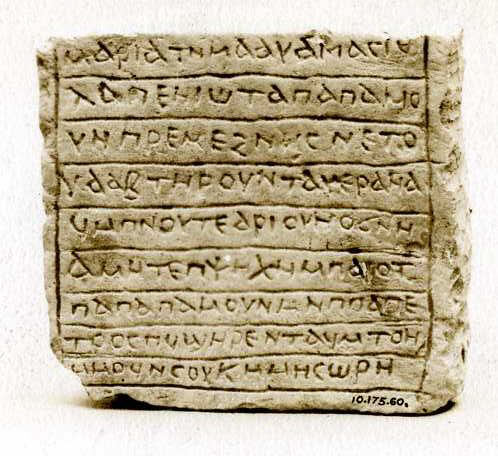 ⲙⲁⲣⲓⲁⲧⲛⲙⲁⲁⲩⲁⲙⲁⲥⲓⲃ
ⲗⲁⲡⲉⲛⲓⲱⲧⲁⲡⲁⲡⲁⲙⲟ
ⲩⲛⲡⲣⲉⲙⲉϩⲛⲏⲥⲛⲉⲧⲟ
ⲩⲁⲁⲃⲧⲏⲣⲟⲩⲛⲧⲁⲩⲉⲣⲁⲛⲁ
ϥⲙⲡⲛⲟⲩⲧⲉⲁⲣⲓⲟⲩⲛⲟϭⲛⲛ
ⲁⲙⲛⲧⲉⲯⲩⲭⲏⲙⲡⲁⲓⲱⲧ
ⲡⲁⲡⲁⲡⲁⲙⲟⲩⲛⲙⲛⲡⲟⲁⲡⲉ
ⲧⲣⲟⲥⲡⲩϣⲏⲣⲉⲛⲧⲁⲩⲙⲧⲟⲛ
ⲙⲙⲟⲩⲛⲥⲟⲩⲕⲏⲙⲏⲥⲱⲣⲏ
10.175.60.